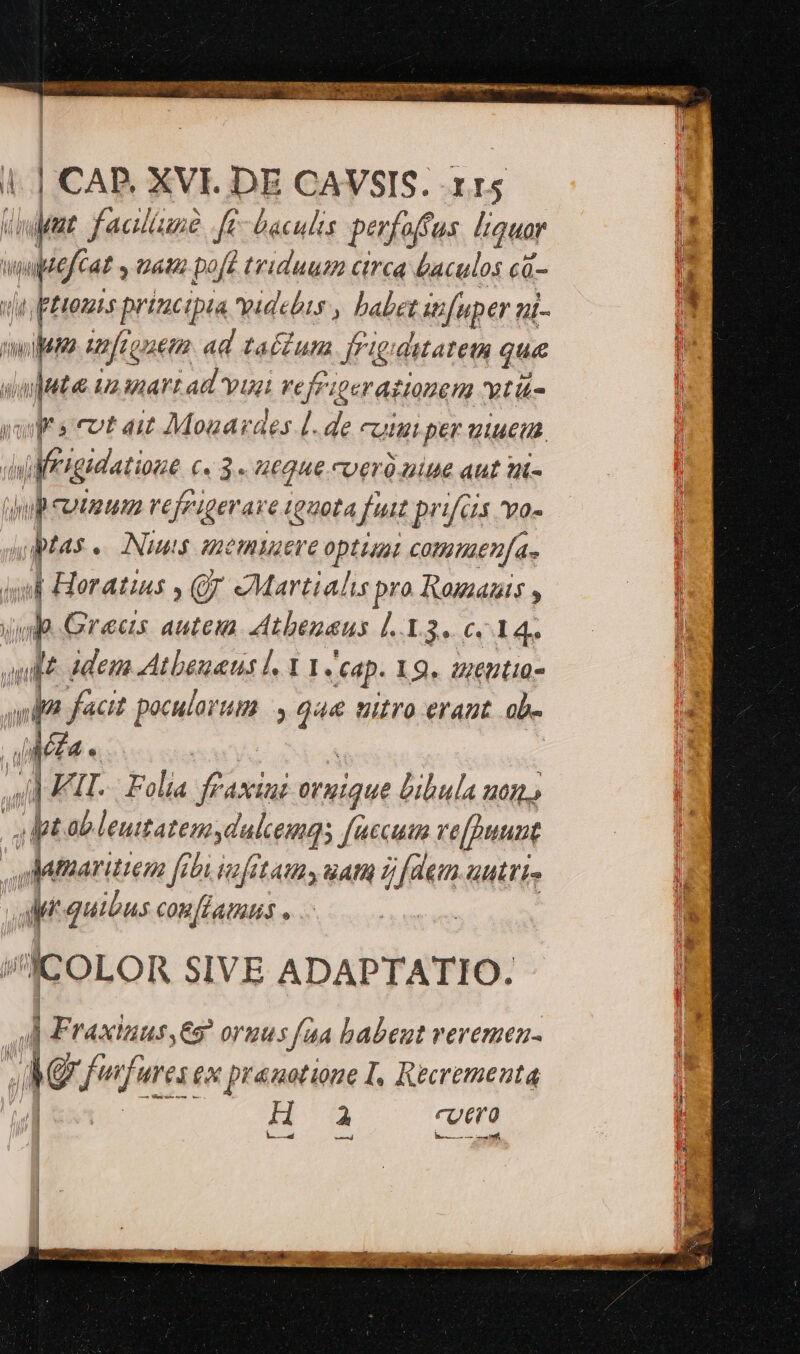 CAP. XVI. DE CAVSIS. 115
facillimè si baculis perfossus liquor
quiescat, nam post triduum circa baculos cō-
principia videbis, habet insuper ni-
insignem ad tactum frigiditatem quæ
in mari ad vini refrigerationem vtū-
vt ait Monardes l. de vini per niuem
c. 3. neque verò niue aut ni-
vinum refrigerare ignota fuit priscis vo-
Niuis meminere optimi commensa-
Horatius, & Martialis pro Romanis,
Græcis autem Athenæus l. 13. c. 14.
idem Athenæus l. 11. cap. 19. mentio-
facit poculorum, quæ nitro erant ob-
VII. Folia fraxini ornique bibula non,
ob lenitatem, dulcemq; succum respuunt
sibi insitam, nam ij sdem nutri-
quibus constamus.
COLOR SIVE ADAPTATIO.
Fraxinus, & ornus sua habent veremen-
& furfures ex prænotione I, Recrementa
H 2 vero